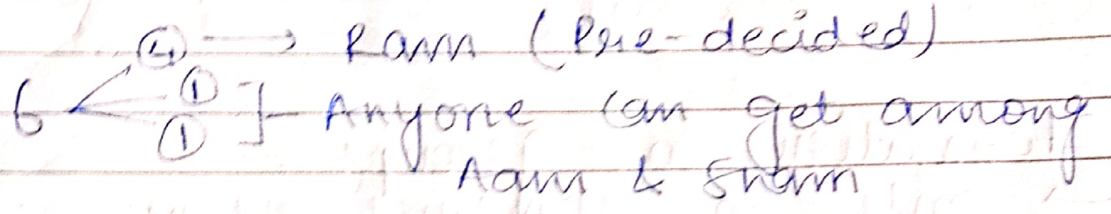 ④ → Ram (Pre-decided)
6 < ① ] Anyone can get among
①
Aam & Shyam